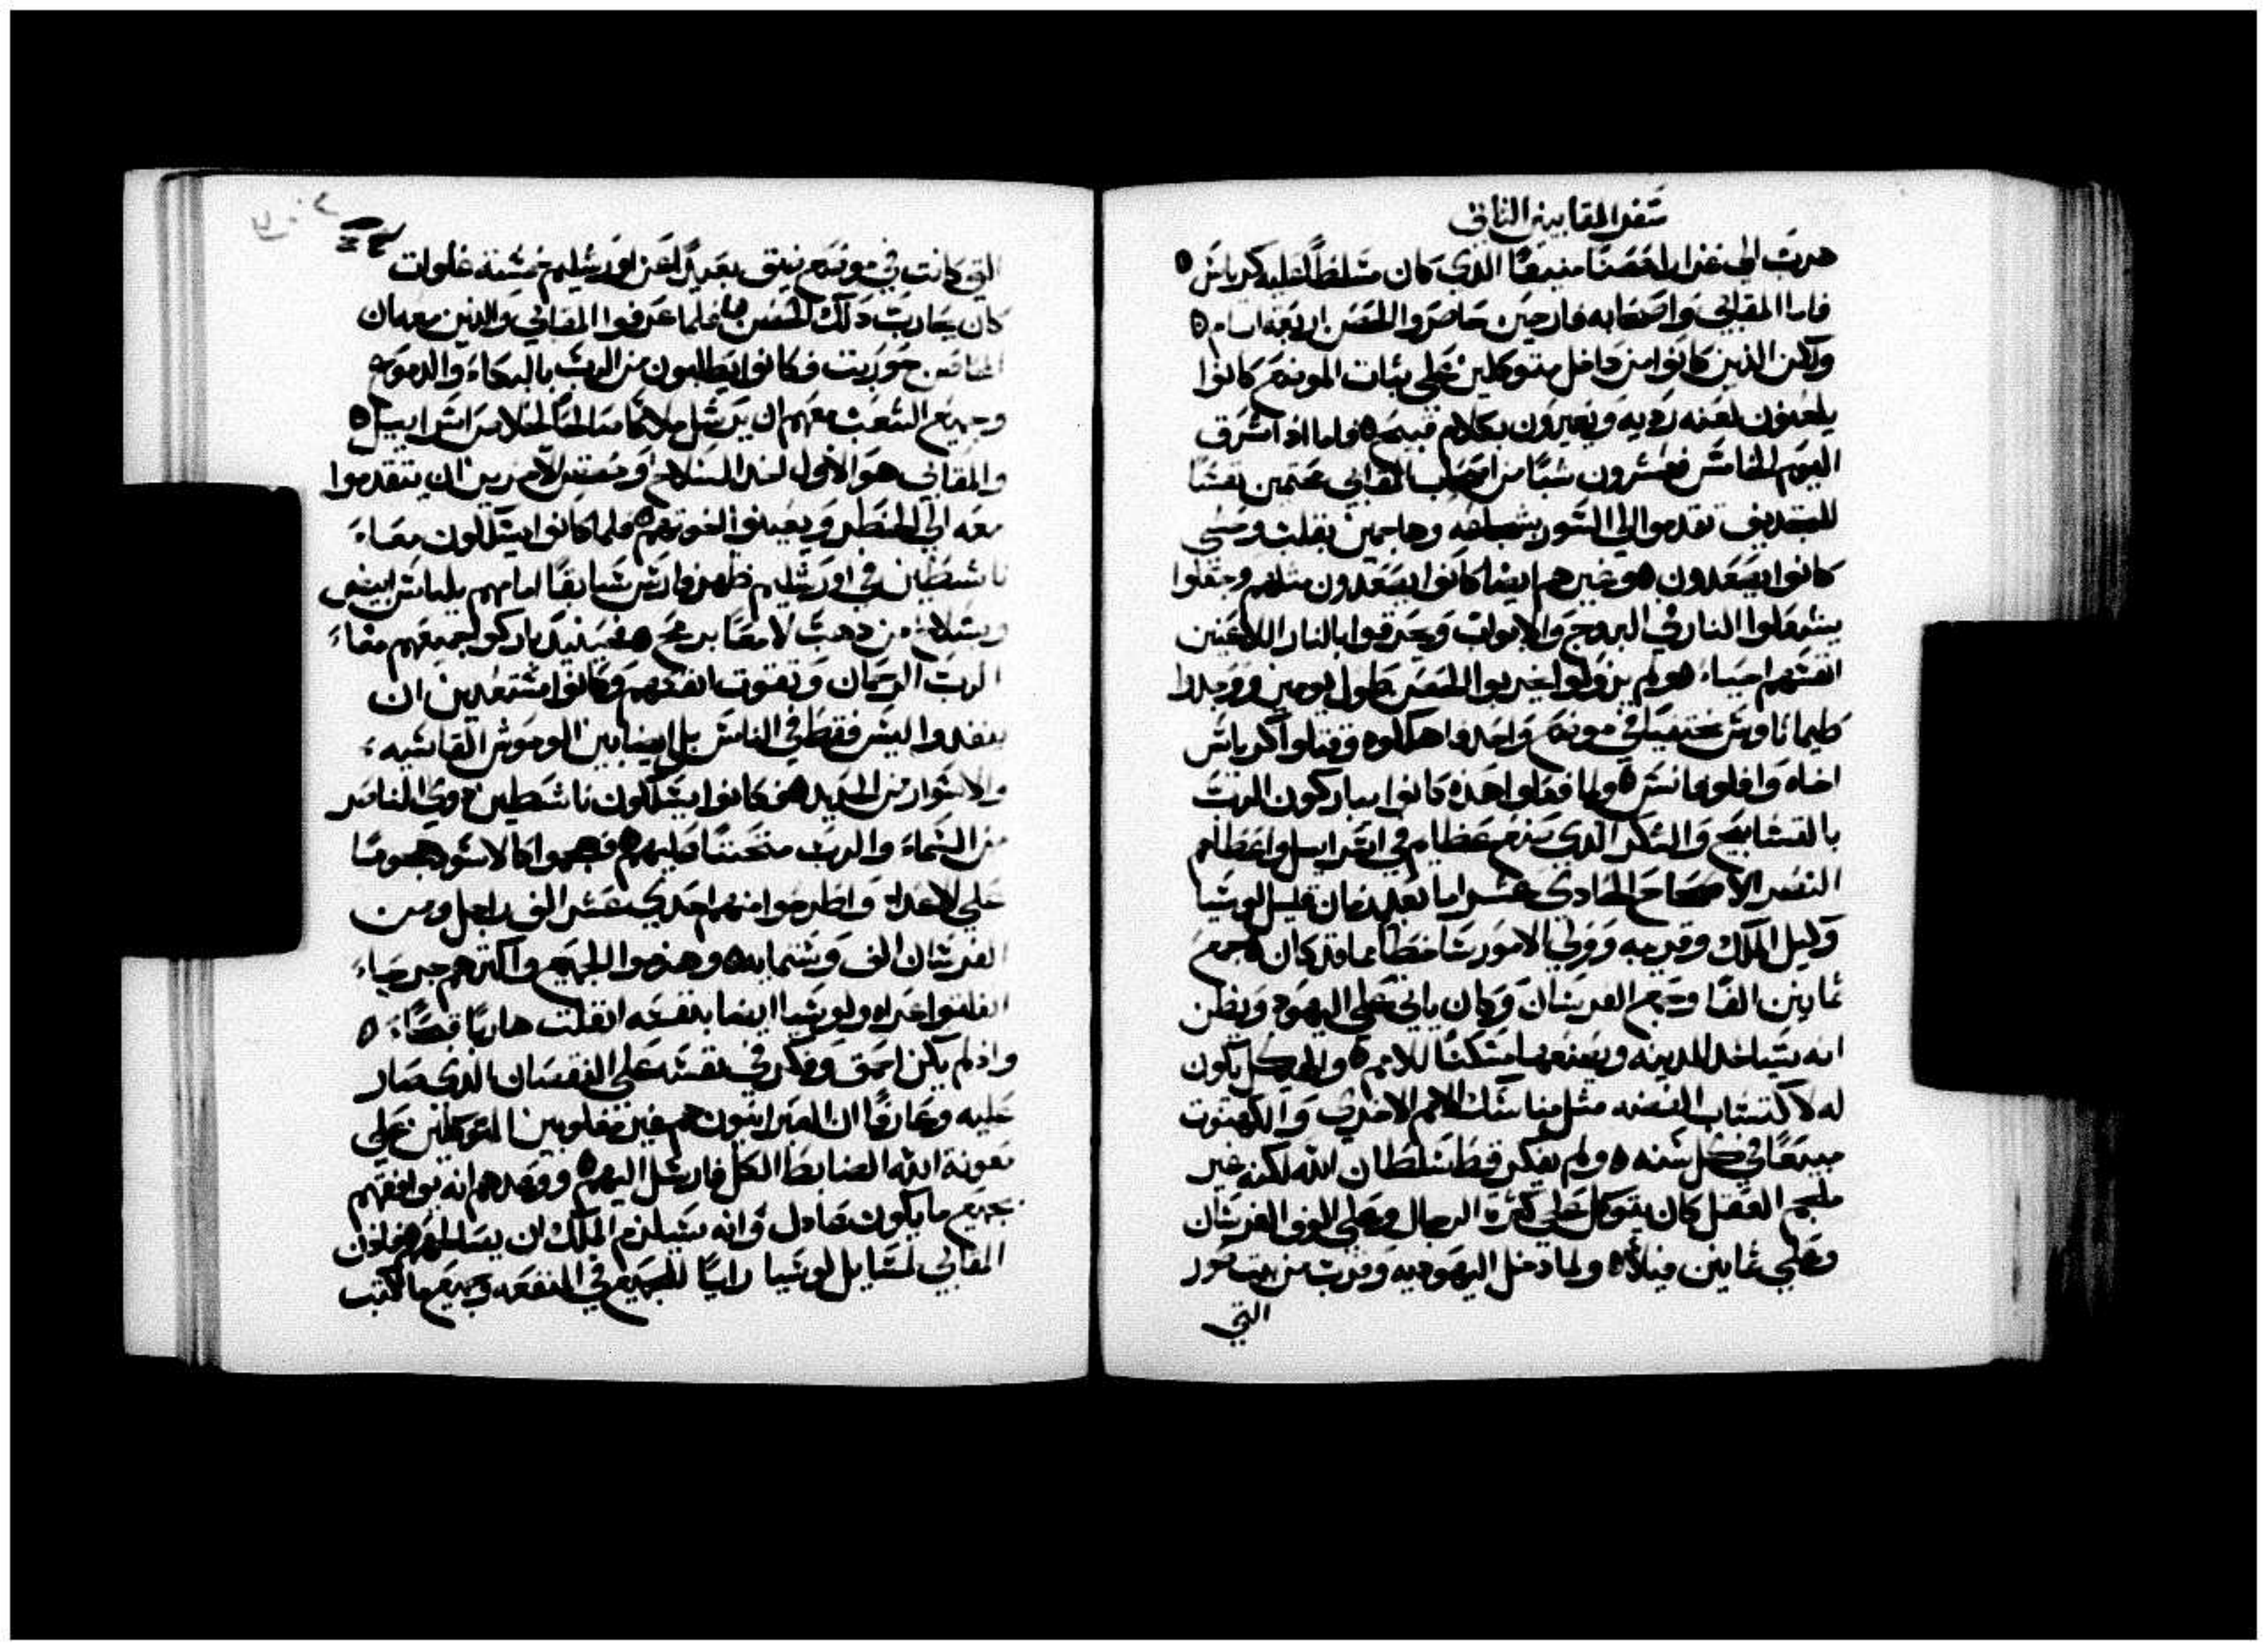 سفر المقابيين الثاني
هرب الي غزارا حصنًا منيعًا الذي كان متسلطًا عليه كرياس
فاما المقابي واصحابه فارحين حاصروا الحصن اربعة ايام
ولكن الذين كانوا من داخل متوكلين علي ثبات الموضع كانوا
يلعنون لعنه رديه ويعيرون بكلام قبيح فاما اذ اشرق
اليوم الخامس فعشرون شبًا من اصحاب المقابي محتمين نفسًا
للتجديف تقدموا الي السور بشجاعه وهاجمين بقلب وحشي
كانوا يصعدون وغيرهم ايضا كانوا يصعدون مثلهم وجعلوا
يشعلوا النار في البروج والابواب ويحرقوا بالنار اللاعنين
انفسهم احياء ولم يزولوا يخربوا الحصن طول يومين ووجدوا
طيماتاوس مختفيًا في موضع واحد واهلكوه وقتلوا كرياس
اخاه وافلوفانس ولما فعلوا هذه كانوا يباركون الرب
بالتسابيح والشكر الذي صنع عظايم في اسراييل واعطاهم
النصر الاصحاح الحادي عشر اما بعد زمان قليل لوسيا
وكيل الملك وقريبه وولي الامور ساخطًا مما قد كان جمع
ثمانين الفًا وجميع الفرسان وكان ياتي علي اليهود ويظن
انه سياخذ المدينه ويصنعها مسكنًا للامم والهيكل يكون
له لاكتساب الفضه مثل مناسك الامم الاخري والكهنوت
مبيعًا في كل سنه ولم يفكر قط سلطان الله لكنه غير
ملجم العقل كان يتوكل علي كثرة الرجال وعلي الوف الفرسان
وعلي ثمانين فيلاً ولما دخل اليهوديه وقرب من بيت صور
التي
التي كانت في موضع ضيق بعيدًا عن اورشليم خمسه غلوات
كان يحارب ذلك الحصن فلما عرفوا المقابي والذين معه ان
الحصون حوربت فكانوا يطلبون من الرب بالبكاء والدموع
وجميع الشعب معهم ان يرسل ملاكًا صالحًا لخلاص اسراييل
والمقابي هو الاول اخذ السلاح وحض الاخرين ان يتقدموا
معه الي الخطر ويعينوا اخوتهم فلما كانوا يسلكون معاء
ناشطين في اورشليم ظهر فارس سابقًا امامهم بلباس ابيض
وبسلاح من ذهب لامعًا برمح فحينيذ باركوا جميعهم معاء
الرب الرحمان وتقوت انفسهم وكانوا مستعدين ان
ينفدوا ليس فقط في الناس بل ايضا بين الوحوش القاسيه
والاسوار من الحديد فكانوا يسلكون ناشطين ذوي الناصر
من السماء والرب متحننًا عليهم فهجموا كالاسود هجومًا
علي الاعداء واطرحوا منهم احدي عشر الف راجل ومن
الفرسان الف وستمايه وهزموا الجميع واكثرهم جرحاء
انفلتوا عراه ولوسيا ايضا بنفسه انفلت هاربًا قبحًا
واذ لم يكن احمق وفكر في نفسه علي النقصان الذي صار
عليه وعارفًا ان العبرانيون هم غير مغلوبين المتوكلين علي
معونة الله الضابط الكل فارسل اليهم ووعدهم انه يوافقهم
بجميع ما يكون عادل وانه سيلزم الملك ان يصالحهم فاذن
المقابي لمسايل لوسيا راييًا للجميع في المنفعه وجميع ما كتب